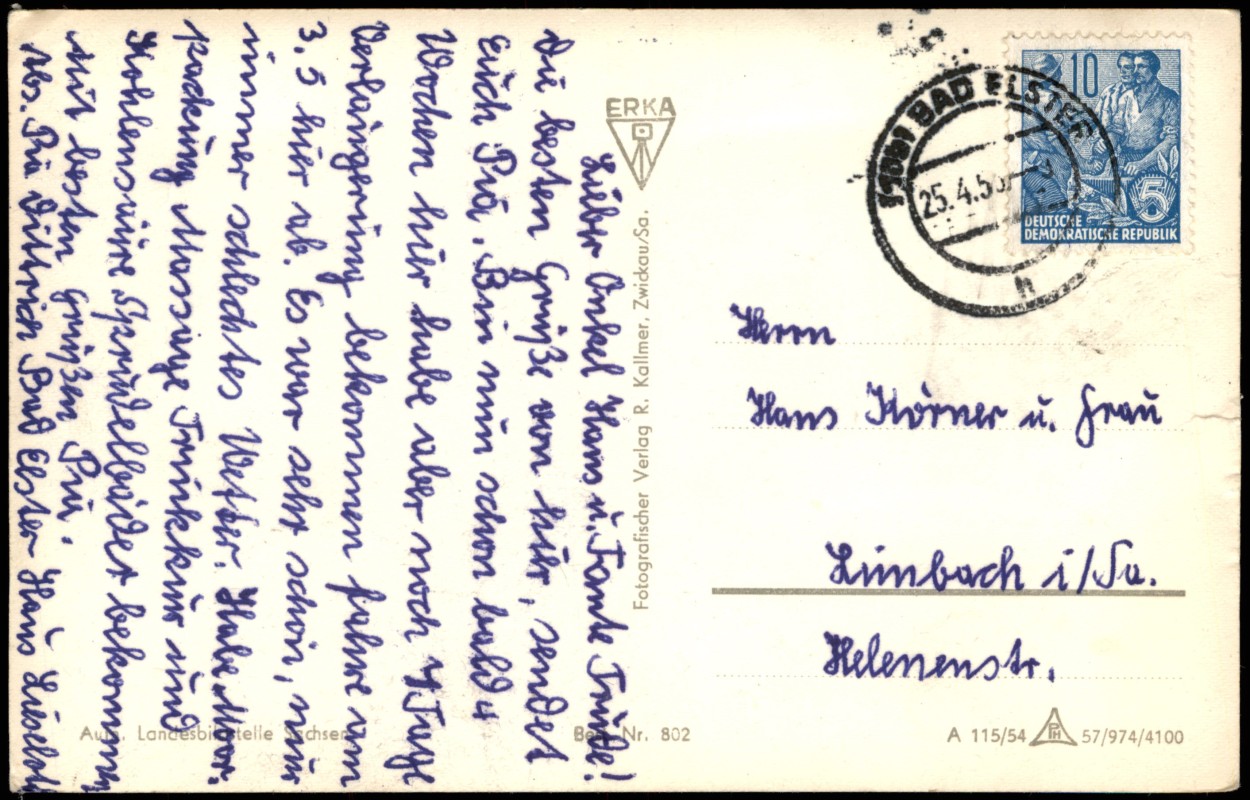 Lieber Onkel Hans u. Tante Trude!
Die besten Grüße von hier, sendet
Euch Pia. Bin nun schon bald 4
Wochen hier habe aber noch 4 Tage
Verlängerung bekommen fahre am
3.5 hier ab. Es war sehr schön, nur
immer schlechtes Wetter. Habe Moor-
packung Massage Trinkkur und
Kohlensäure Sprudelbäder bekommen
Mit besten Grüßen Pia.
Abs. Pia Dittrich Bad Elster Haus Liselott
ERKA
Fotografischer Verlag R. Kallmer, Zwickau/Sa.
Aufn. Landesbildstelle Sachsen
Best. Nr. 802
BAD ELSTER
25.4.5
h
10
5
DEUTSCHE
DEMOKRATISCHE REPUBLIK
Herrn
Hans Körner u. Frau
Limbach i/Sa.
Helenenstr.
A 115/54
PH
57/974/4100